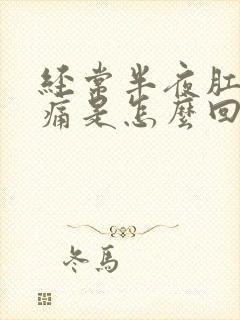 经常半夜肛
痛是怎麼回
冬馬